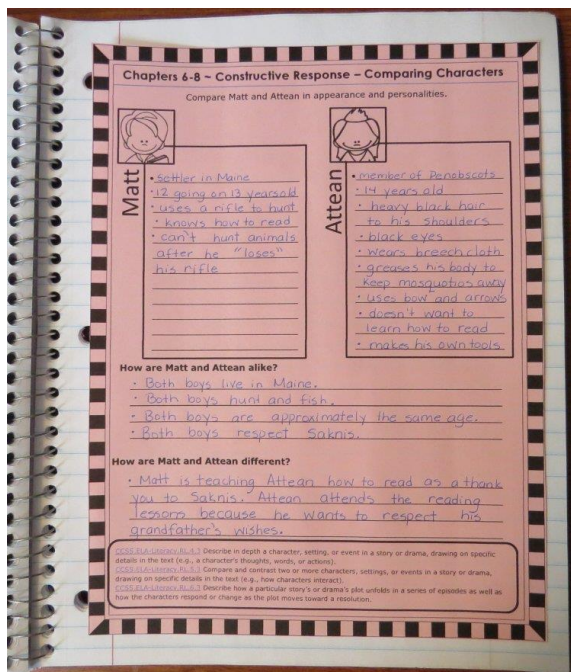 Chapters 6-8 ~ Constructive Response – Comparing Characters
Compare Matt and Attean in appearance and personalities.
Matt
• settler in Maine
• 12 going on 13 years old
• uses a rifle to hunt
• knows how to read
• can't hunt animals
after he "loses"
his rifle
Attean
• member of Penobscots
• 14 years old
• heavy black hair
to his shoulders
• black eyes
• wears breechcloth
• greases his body to
keep mosquotios away
• uses bow and arrows
• doesn't want to
learn how to read
• makes his own tools
How are Matt and Attean alike?
• Both boys live in Maine.
• Both boys hunt and fish.
• Both boys are approximately the same age.
• Both boys respect Saknis.
How are Matt and Attean different?
• Matt is teaching Attean how to read as a thank
you to Saknis. Attean attends the reading
lessons because he wants to respect his
grandfather's wishes.
CCSS.ELA-Literacy.RL.4.3 Describe in depth a character, setting, or event in a story or drama, drawing on specific
details in the text (e.g., a character's thoughts, words, or actions).
CCSS.ELA-Literacy.RL.5.3 Compare and contrast two or more characters, settings, or events in a story or drama,
drawing on specific details in the text (e.g., how characters interact).
CCSS.ELA-Literacy.RL.6.3 Describe how a particular story's or drama's plot unfolds in a series of episodes as well as
how the characters respond or change as the plot moves toward a resolution.